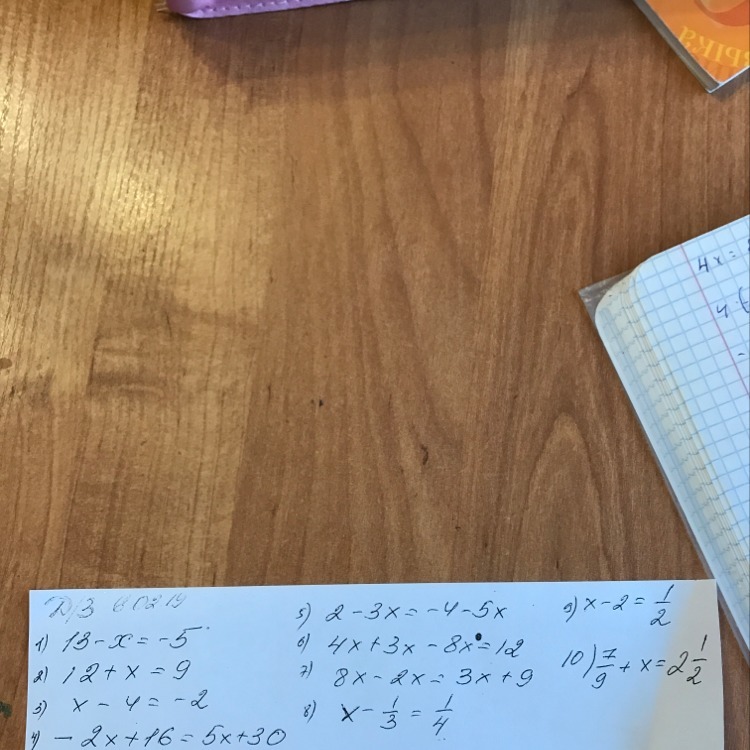 Д/3
1) 13 - x = -5
2) 12 + x = 9
3) x - 4 = -2
4) - 2x + 16 = 5x + 30
5) 2 - 3x = -4 - 5x
6) 4x + 3x - 8x = 12
7) 8x - 2x = 3x + 9
8) x - 1/3 = 1/4
9) x - 2 = 1/2
10) 7/9 + x = 2 1/2
4x =
4